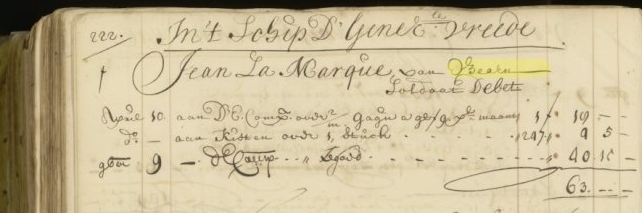 222. In't Schip D' Gener.le Vreede
Jean La Marque, van Bearn
Soldaat Debet
April 10 aan D'E. Comp. over 2/m gagie a gl/9 p.r maant 1 f 19 — —
d.o — aan kisten over 1, stuck 1247 9 5 —
9 — d'E Comp 40 15 —
63. — —